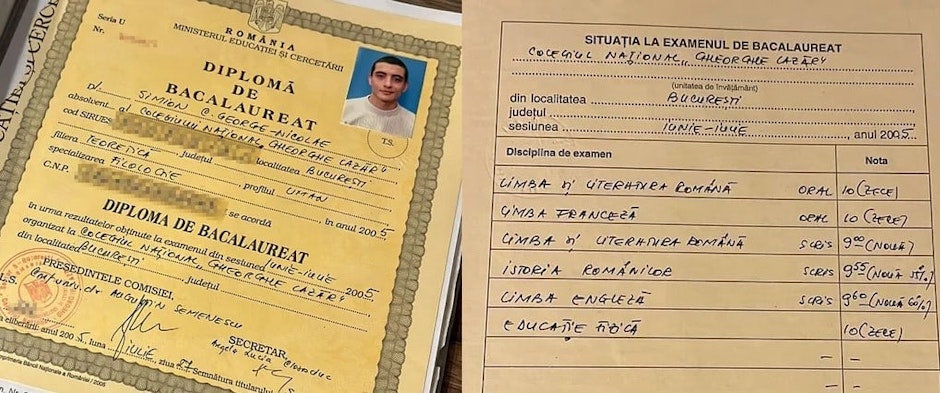 Seria U
Nr.
ROMÂNIA
MINISTERUL EDUCAȚIEI ȘI CERCETĂRII
DIPLOMĂ
DE
BACALAUREAT
SIMION C. GEORGE-NICOLAE
absolvent al COLEGIULUI NAȚIONAL „GHEORGHE LAZĂR"
cod SIRUES localitatea BUCUREȘTI
filiera TEORETICĂ, județul
specializarea FILOLOGIE, profilul UMAN
C.N.P. se acordă în anul 2005
DIPLOMA DE BACALAUREAT
în urma rezultatelor obținute la examenul din sesiunea IUNIE-IULIE 2005,
organizat la COLEGIUL NAȚIONAL „GHEORGHE LAZĂR"
din localitatea BUCUREȘTI
PREȘEDINTELE COMISIEI,
L.S.
univ. dr AUGUSTIN SEMENESCU
SECRETAR,
Angela Lucia
eliberării: anul 2005, luna IULIE, ziua 07 Semnătura titularului
Imprimeria Băncii Naționale a României / 2005
T.S.
SITUAȚIA LA EXAMENUL DE BACALAUREAT
COLEGIUL NAȚIONAL „GHEORGHE LAZĂR"
(unitatea de învățământ)
din localitatea BUCUREȘTI
județul
sesiunea IUNIE-IULIE, anul 2005
Disciplina de examen Nota
LIMBA ȘI LITERATURA ROMÂNĂ ORAL 10 (ZECE)
LIMBA FRANCEZĂ ORAL 10 (ZECE)
LIMBA ȘI LITERATURA ROMÂNĂ SCRIS 9,00 (NOUĂ)
ISTORIA ROMÂNILOR SCRIS 9,55 (NOUĂ 55%)
LIMBA ENGLEZĂ SCRIS 9,60 (NOUĂ 60%)
EDUCAȚIE FIZICĂ 10 (ZECE)
– –
– –